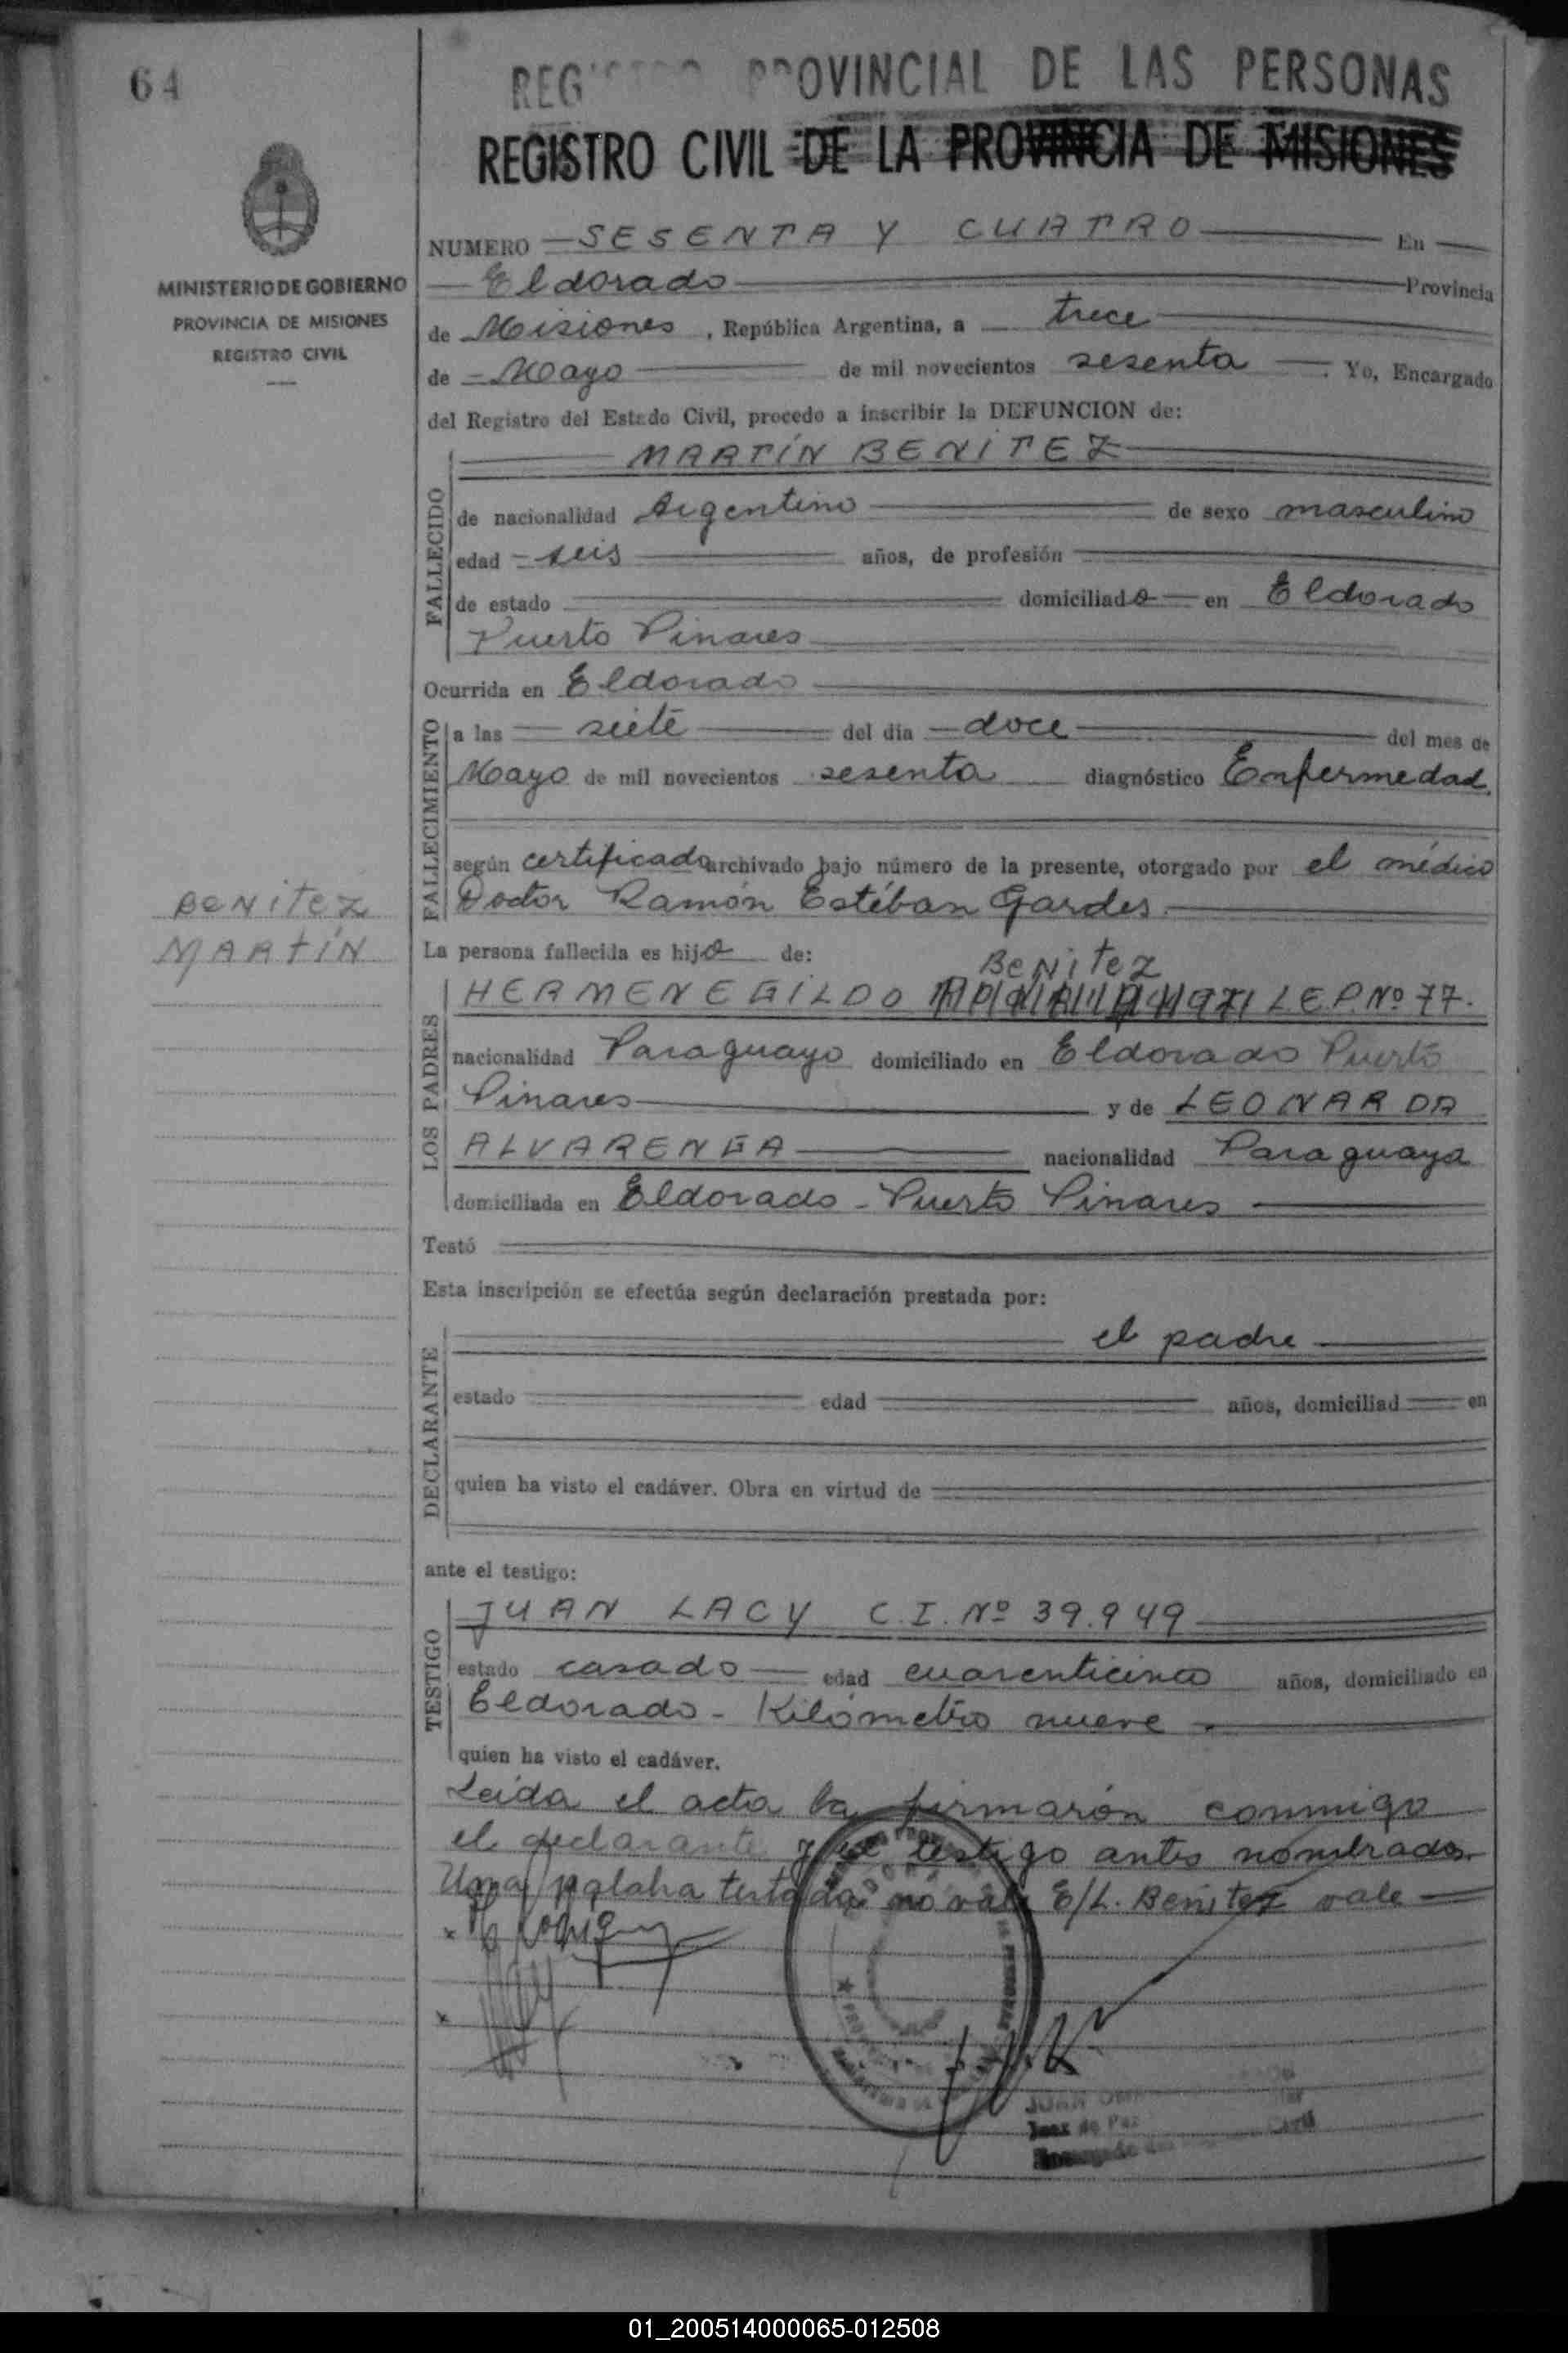 64
REGISTRO PROVINCIAL DE LAS PERSONAS
REGISTRO CIVIL DE LA PROVINCIA DE MISIONES
MINISTERIO DE GOBIERNO
PROVINCIA DE MISIONES
REGISTRO CIVIL
NUMERO SESENTA Y CUATRO En
Eldorado Provincia
de Misiones, República Argentina, a trece
de Mayo de mil novecientos sesenta. Yo, Encargado
del Registro del Estado Civil, procedo a inscribir la DEFUNCION de:
MARTÍN BENITEZ
FALLECIDO
de nacionalidad Argentino de sexo masculino
edad seis años, de profesión
de estado domiciliado en Eldorado
Puerto Pinares
Ocurrida en Eldorado
FALLECIMIENTO
a las siete del día doce del mes de
Mayo de mil novecientos sesenta diagnóstico Enfermedad.
según certificado archivado bajo número de la presente, otorgado por el médico
Doctor Ramón Estéban Gardes.
BENITEZ
MARTÍN
La persona fallecida es hijo de:
Benitez
HERMENEGILDO L.E.P. Nº 77.
LOS PADRES
nacionalidad Paraguayo domiciliado en Eldorado Puerto
Pinares y de LEONARDA
ALVARENGA nacionalidad Paraguaya
domiciliada en Eldorado - Puerto Pinares
Testó
Esta inscripción se efectúa según declaración prestada por:
el padre
DECLARANTE
estado edad años, domiciliad en
quien ha visto el cadáver. Obra en virtud de
ante el testigo:
JUAN LACY C.I. Nº 39.949
TESTIGO
estado casado edad cuarenticinco años, domiciliado en
Eldorado - Kilómetro nueve.
quien ha visto el cadáver.
Leída el acta la firmarón conmigo
el declarante y el testigo antes nombrados.
Una palabra testada no vale E/L. Benitez vale
JUAN
Juez de Paz
Encargado del Civil
01_200514000065-012508